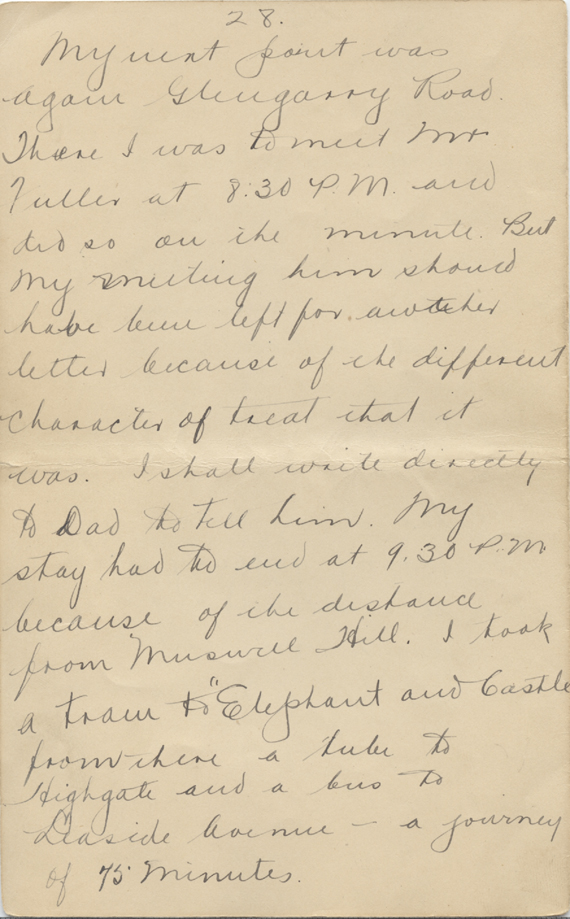 28.
My next point was
again Glengarry Road.
There I was to meet Mr
Fuller at 8:30 P.M. and
did so on the minute. But
my meeting him should
have been left for another
letter because of the different
character of treat that it
was. I shall write directly
to Dad to tell him. My
stay had to end at 9.30 P.M.
because of the distance
from Muswell Hill. I took
a tram to "Elephant and Castle
from there a tube to
Highgate and a bus to
Leaside Avenue - a journey
of 75 minutes.